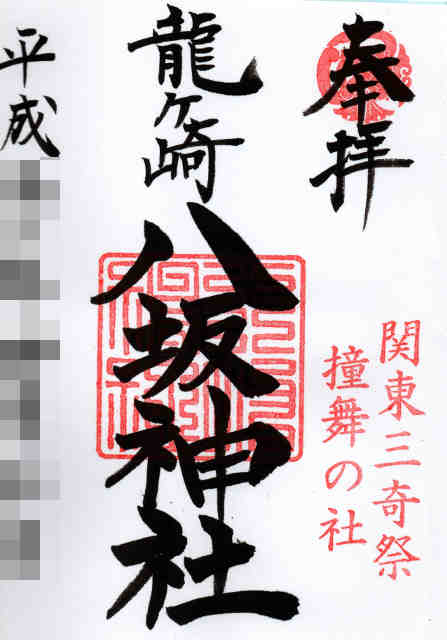 奉拝
関東三奇祭
撞舞の社
龍ヶ崎
八坂神社
平成